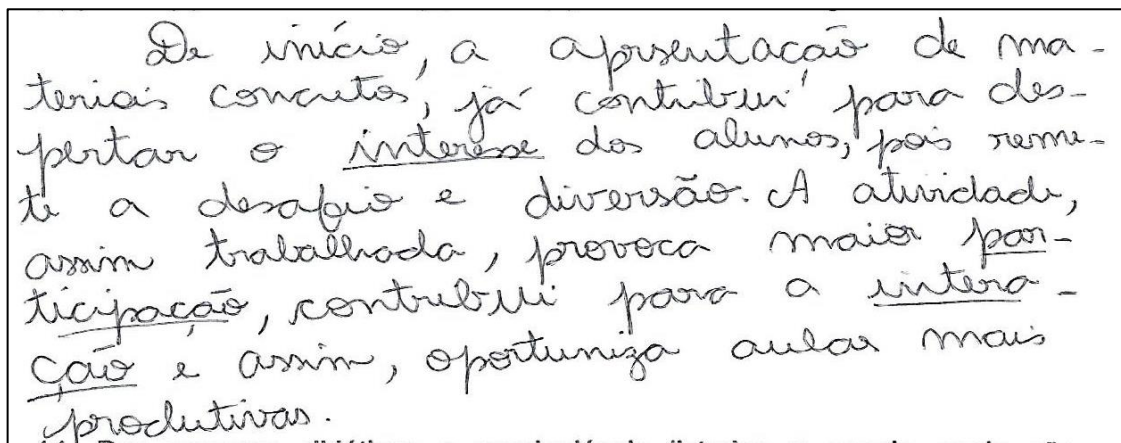 De início, a apresentação de ma-
teriais concretos, já contribui para des-
pertar o interesse dos alunos, pois reme-
te a desafio e diversão. A atividade,
assim trabalhada, provoca maior par-
ticipação, contribui para a intera-
ção e assim, oportuniza aulas mais
produtivas.